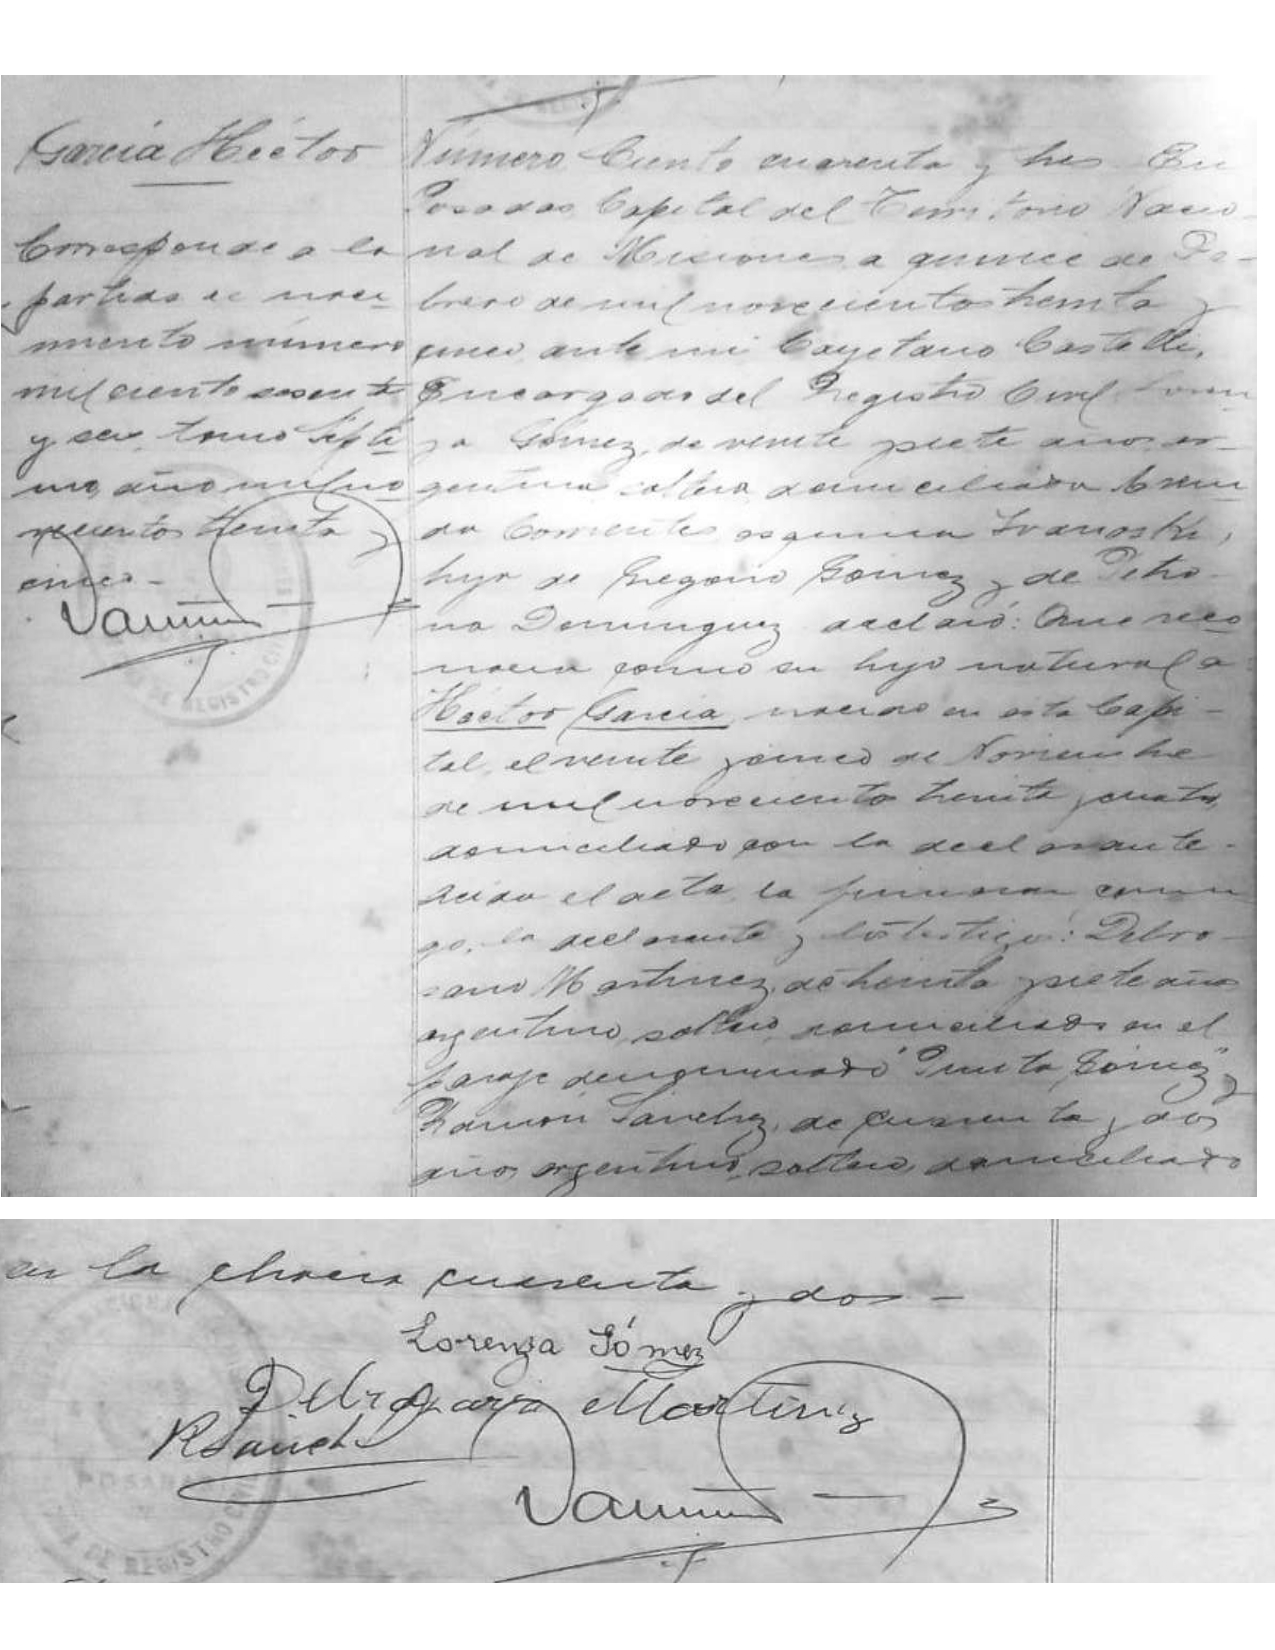 García Héctor
Corresponde a la
partida de naci
miento número
mil ciento sesenta
y seis, tomo Septi
mo, año mil no
vecientos treinta y
cinco -
Número Ciento cuarenta y tres En
Posadas Capital del Territorio Nacio-
nal de Misiones, a quince de Fe-
brero de mil novecientos treinta y
cinco, ante mi Cayetano Castelli,
Encargado del Registro Civil Loren
za Gómez, de veinte y siete años, ar-
gentina, soltera, domiciliada Aveni
da Corrientes esquina Ivanoski,
hija de Gregorio Gómez y de Petro-
na Dominguez declaró: Que reco
nocia como su hijo natural a
Héctor García, nacido en esta Capi-
tal, el veinte y cinco de Noviembre
de mil novecientos treinta y cuatro,
domiciliado con la declarante.
Leida el acta, la firmaron conmi
go, la declarante y los testigos: Delro-
sario Martinez, de treinta y siete años
argentino, soltero, domiciliado en el
paraje denominado "Punta Gómez" y
Ramón Sánchez, de cuarenta y dos
años, argentino, soltero, domiciliado
en la chacra cuarenta y dos -
Lorenza Gómez
Delrosario Martinez
R Sanch
POSADAS
REGISTRO CIVIL